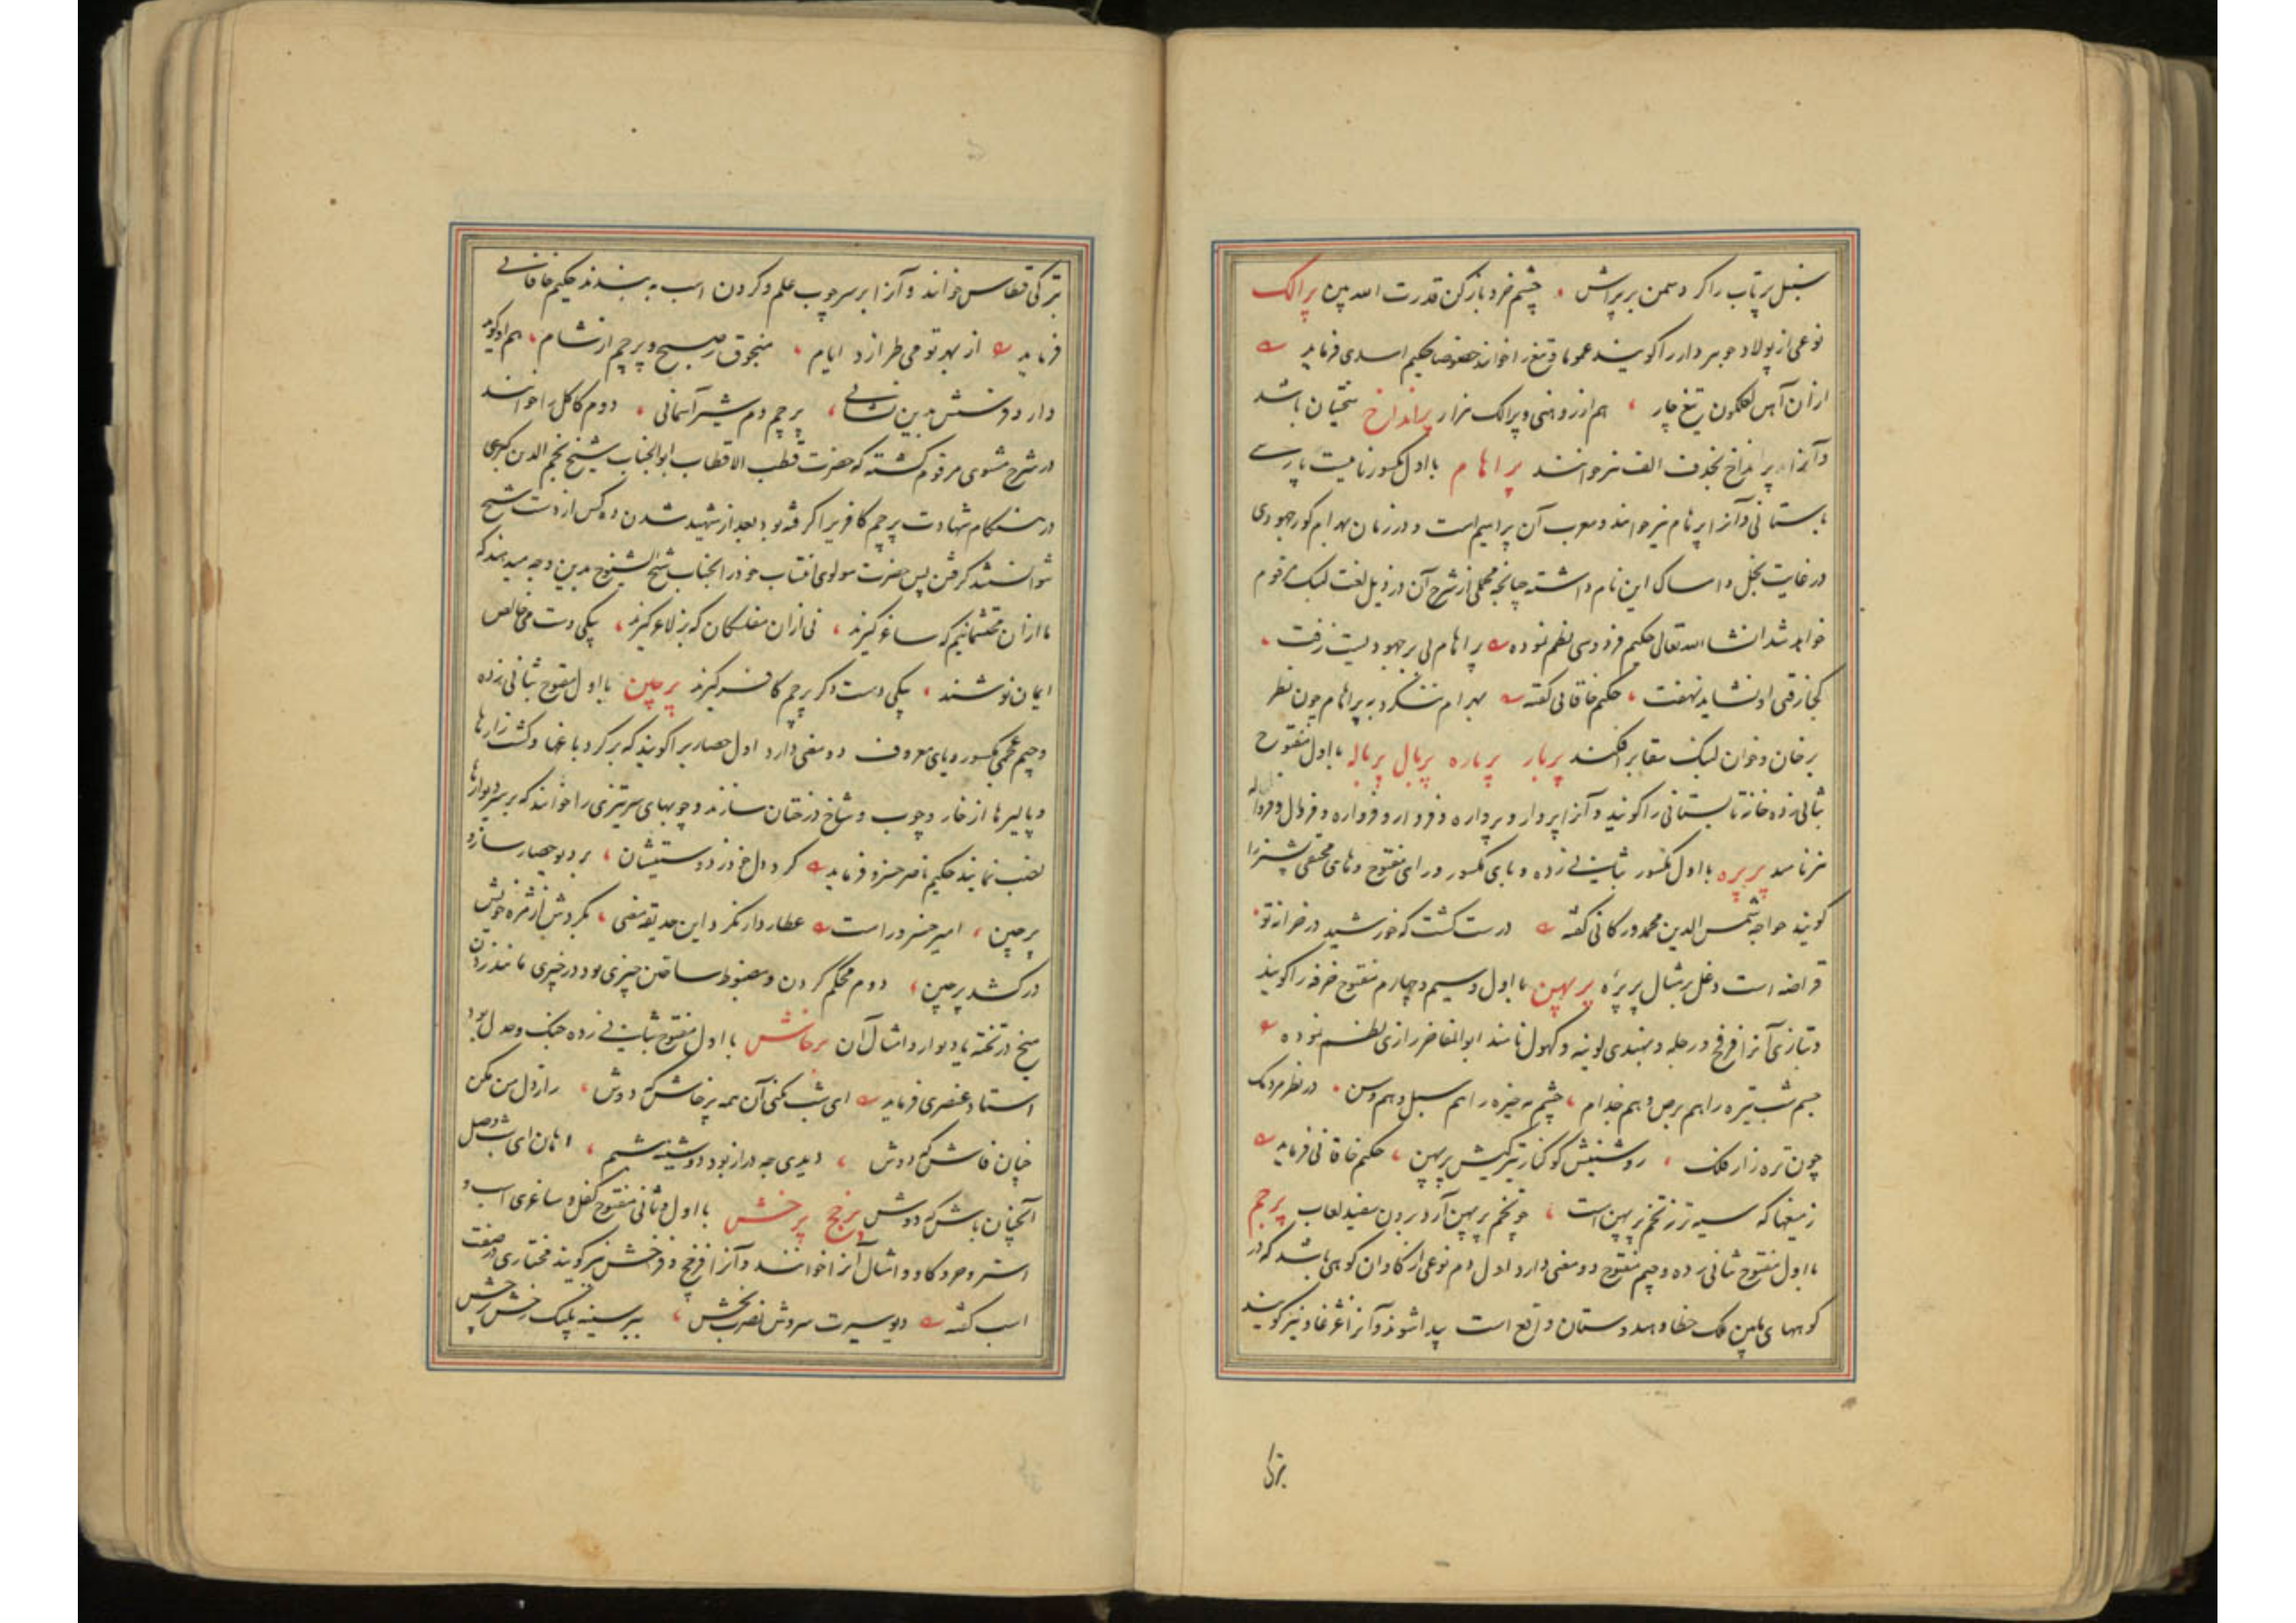 سنبل پرتاب را کر د سمن بر پراش چشم خرد باز کن قدرت الله بین پرالک
نوعی از پولاد جوهر دار را گویند عموما و تیغ را خوانند خصوصا حکیم اسدی فرماید
از آن آهن لعلگون تیغ چار هم از روهنی و پرالک هزار پرانداخ سختیان باشد
و آنرا پرنداخ بحذف الف نیز خوانند پراهام با اول مکسور نامیست پارسی
باستانی و آنرا پرهام نیز خوانند و معرب آن براهیم است و در زمان بهرام گور جهودی
در غایت بخل و امساک این نام داشته چنانچه مجملی از شرح آن در ذیل لغت لنبک مرقوم
خواهد شد انشا الله تعالی حکیم فردوسی نظم نموده براهام بی بر جهودیست زفت
کجا زفتی او نشاید نهفت حکیم خاقانی گفته بهرام ننگرد به براهام چون نظر
بر خان و خوان لنبک سقا برافکند پربار پرباره پربال پرباله با اول مفتوح
بثانی زده خانه تابستانی را گویند و آنرا پروار و پرواره و فروار و فرواره و فروال و فرواله
نیز نامند پربره با اول مکسور بثانی زده و بای مکسور و رای مفتوح و های مختفی پشیز را
گویند خواجه شمس الدین محمد درکانی گفته درست گشت که خورشید در خزانه تو
قراضه ایست دغل بر مثال پربره پرپهن با اول و سیم و چهارم مفتوح خرفه را گویند
و بتازی آنرا فرفخ و رجله و بهندی لونیه و کهول نامند ابو المفاخر رازی نظم نموده
جسم شب تیره را هم برص و هم جذام چشم مه خیره را هم سبل و هم وسن در نظر مردمک
چون تره زار فلک روشنیش کوکنار تیرگیش پرپهن حکیم خاقانی فرماید
زمیغها که سیه تر ز تخم پرپهن است چو تخم پرپهن آرد برون سفید لعاب پرچم
با اول مفتوح بثانی زده و جیم مفتوح دو معنی دارد اول دم نوعی از گاوان کوهی باشد که در
کوههای مابین ملک خطا و هندوستان واقع است پیدا شوند و آنرا غژغاو نیز گویند
بترکی
بترکی قطاس خوانند و آنرا بر سر چوب علم و گردن اسب به بندند حکیم خاقانی
فرماید از بهر تو می طرازد ایام منجوق ز صبح و پرچم از شام هم او گوید
دارد فرسش بدین نشانی پرچم ز دم شیر آسمانی دوم کاکل را خوانند
در شرح مثنوی مرقوم گشته که حضرت قطب الاقطاب ابو الجناب شیخ نجم الدین کبری
در هنگام شهادت پرچم کافریرا گرفته بود بعد از شهید شدن ده کس از دست شیخ
نتوانستند گرفتن پس حضرت مولوی انتساب خود را بجناب شیخ الشیوخ بدین وجه میدهند که
ما از آن محتشمانیم که ساغر گیرند نی از آن مفلسکان که بز لاغر گیرند یکی دست می خالص
ایمان نوشند یکی دست دگر پرچم کافر گیرند پرچین با اول مفتوح بثانی زده
و جیم عجمی مکسور و یای معروف دو معنی دارد اول حصاریرا گویند که بر گرد باغها و کشت زارها
و پالیزها از خار و چوب و شاخ درختان سازند و چوبهای سرتیزی را خوانند که بر سر دیوارها
نصب نمایند حکیم ناصر خسرو فرماید گرد دل خود ز دوستیشان بر دیو حصار سازو
پرچین امیر خسرو راست عطاردار نگرد این حدیقه معنی بگردش از مژه خویش
درکشد پرچین دوم محکم کردن و مضبوط ساختن چیزی بود در چیزی مانند زدن
میخ در تخته یا دیوار و امثال آن پرخاش با اول مفتوح بثانی زده جنگ و جدل بود
استاد عنصری فرماید ای شب نکنی آن همه پرخاش که دوش راز دل من مکن
چنان فاش که دوش دیدی چه دراز بود دوشینه شبم هان ای شب وصل
آنچنان باش که دوش پرخج پرخش با اول و ثانی مفتوح کفل و ساغری اسب و
استر و خر و گاو و امثال آنرا خوانند و آنرا فرخج و فرخش نیز گویند مختاری در صفت
اسب گفته دیو سیرت سروش نصرت بخش ببر سینه پلنگ رخش پرخش